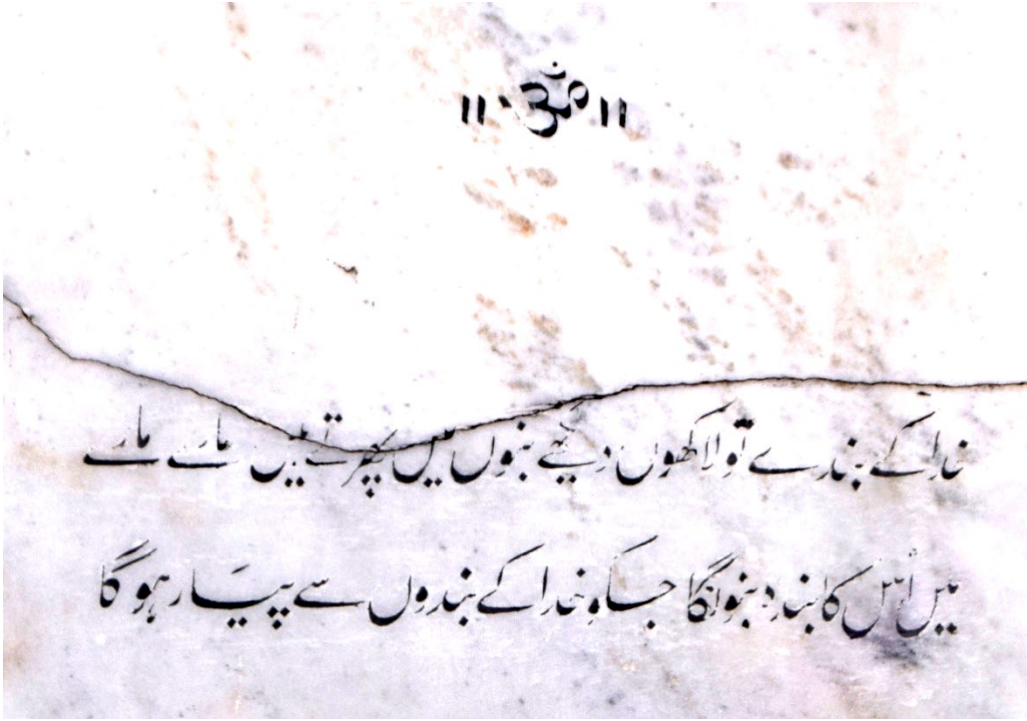 ॥ ॐ ॥
خدا کے بندے تو لاکھوں دیکھے بنوں میں پھرتے ہیں مارے مارے
میں اُس کا بندہ بنونگا جسکو خدا کے بندوں سے پیَار ہوگا